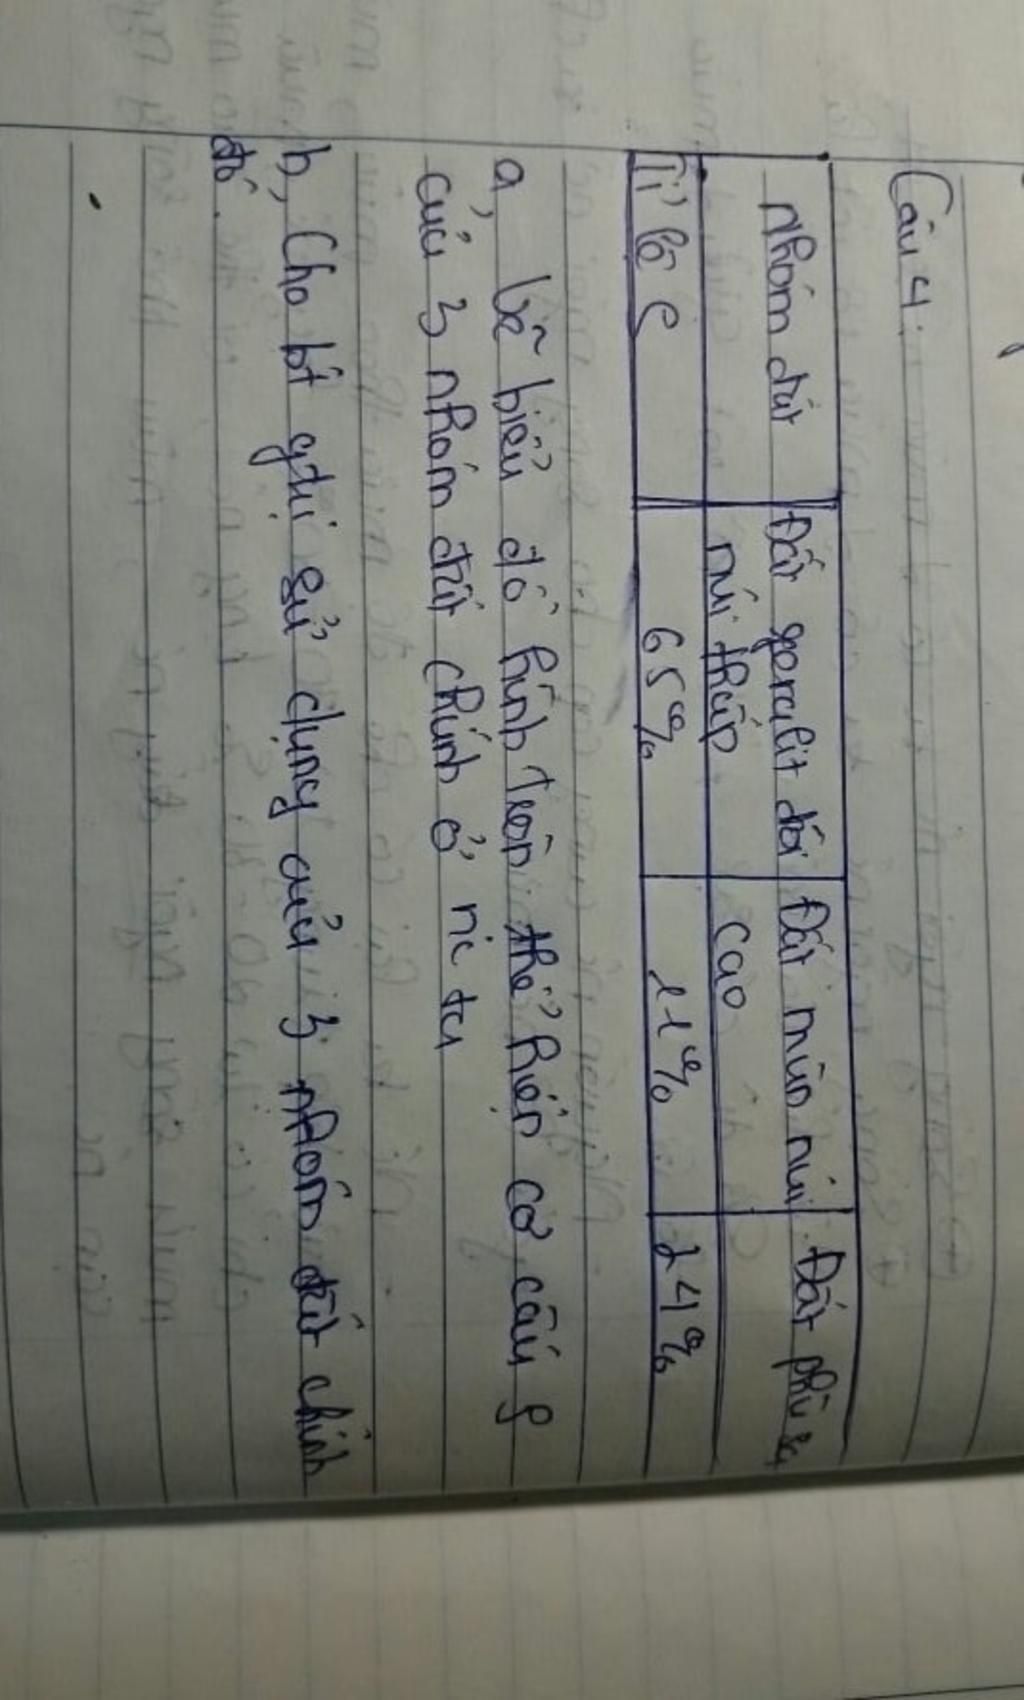 Câu 4:
Nhóm đất Đất feralit đồi núi thấp Đất mùn núi cao Đất phù sa
Tỉ lệ S 65% 11% 24%
a, Vẽ biểu đồ hình tròn thể hiện cơ cấu S
của 3 nhóm đất chính ở nc ta
b, Cho bt gtrị sử dụng của 3 nhóm đất chính
đó.